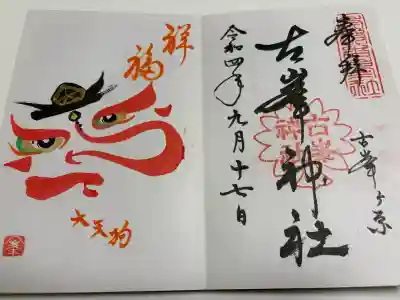 奉拝
古峯ヶ原
古峯神社
令和四年九月十七日
祥福
大天狗